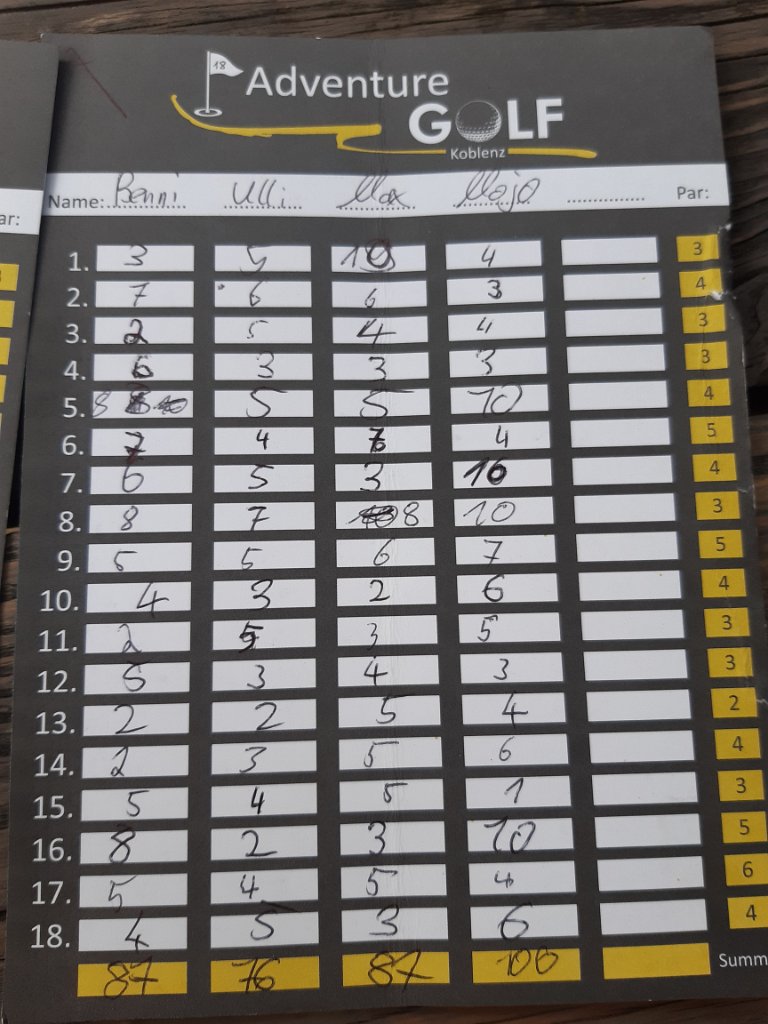 18 Adventure
GOLF
Koblenz
Name: Benni Ulli Max Mojo Par:
ar:
1. 3 5 10 4 3
2. 7 6 6 3 4
3. 2 5 4 4 3
4. 6 3 3 3 3
5. 8 5 5 10 4
6. 7 4 7 4 5
7. 6 5 3 10 4
8. 8 7 8 10 3
9. 5 5 6 7 5
10. 4 3 2 6 4
11. 2 5 3 5 3
12. 6 3 4 3 3
13. 2 2 5 4 2
14. 2 3 5 6 4
15. 5 4 5 1 3
16. 8 2 3 10 5
17. 5 4 5 4 6
18. 4 5 3 6 4
87 76 87 100 Summ